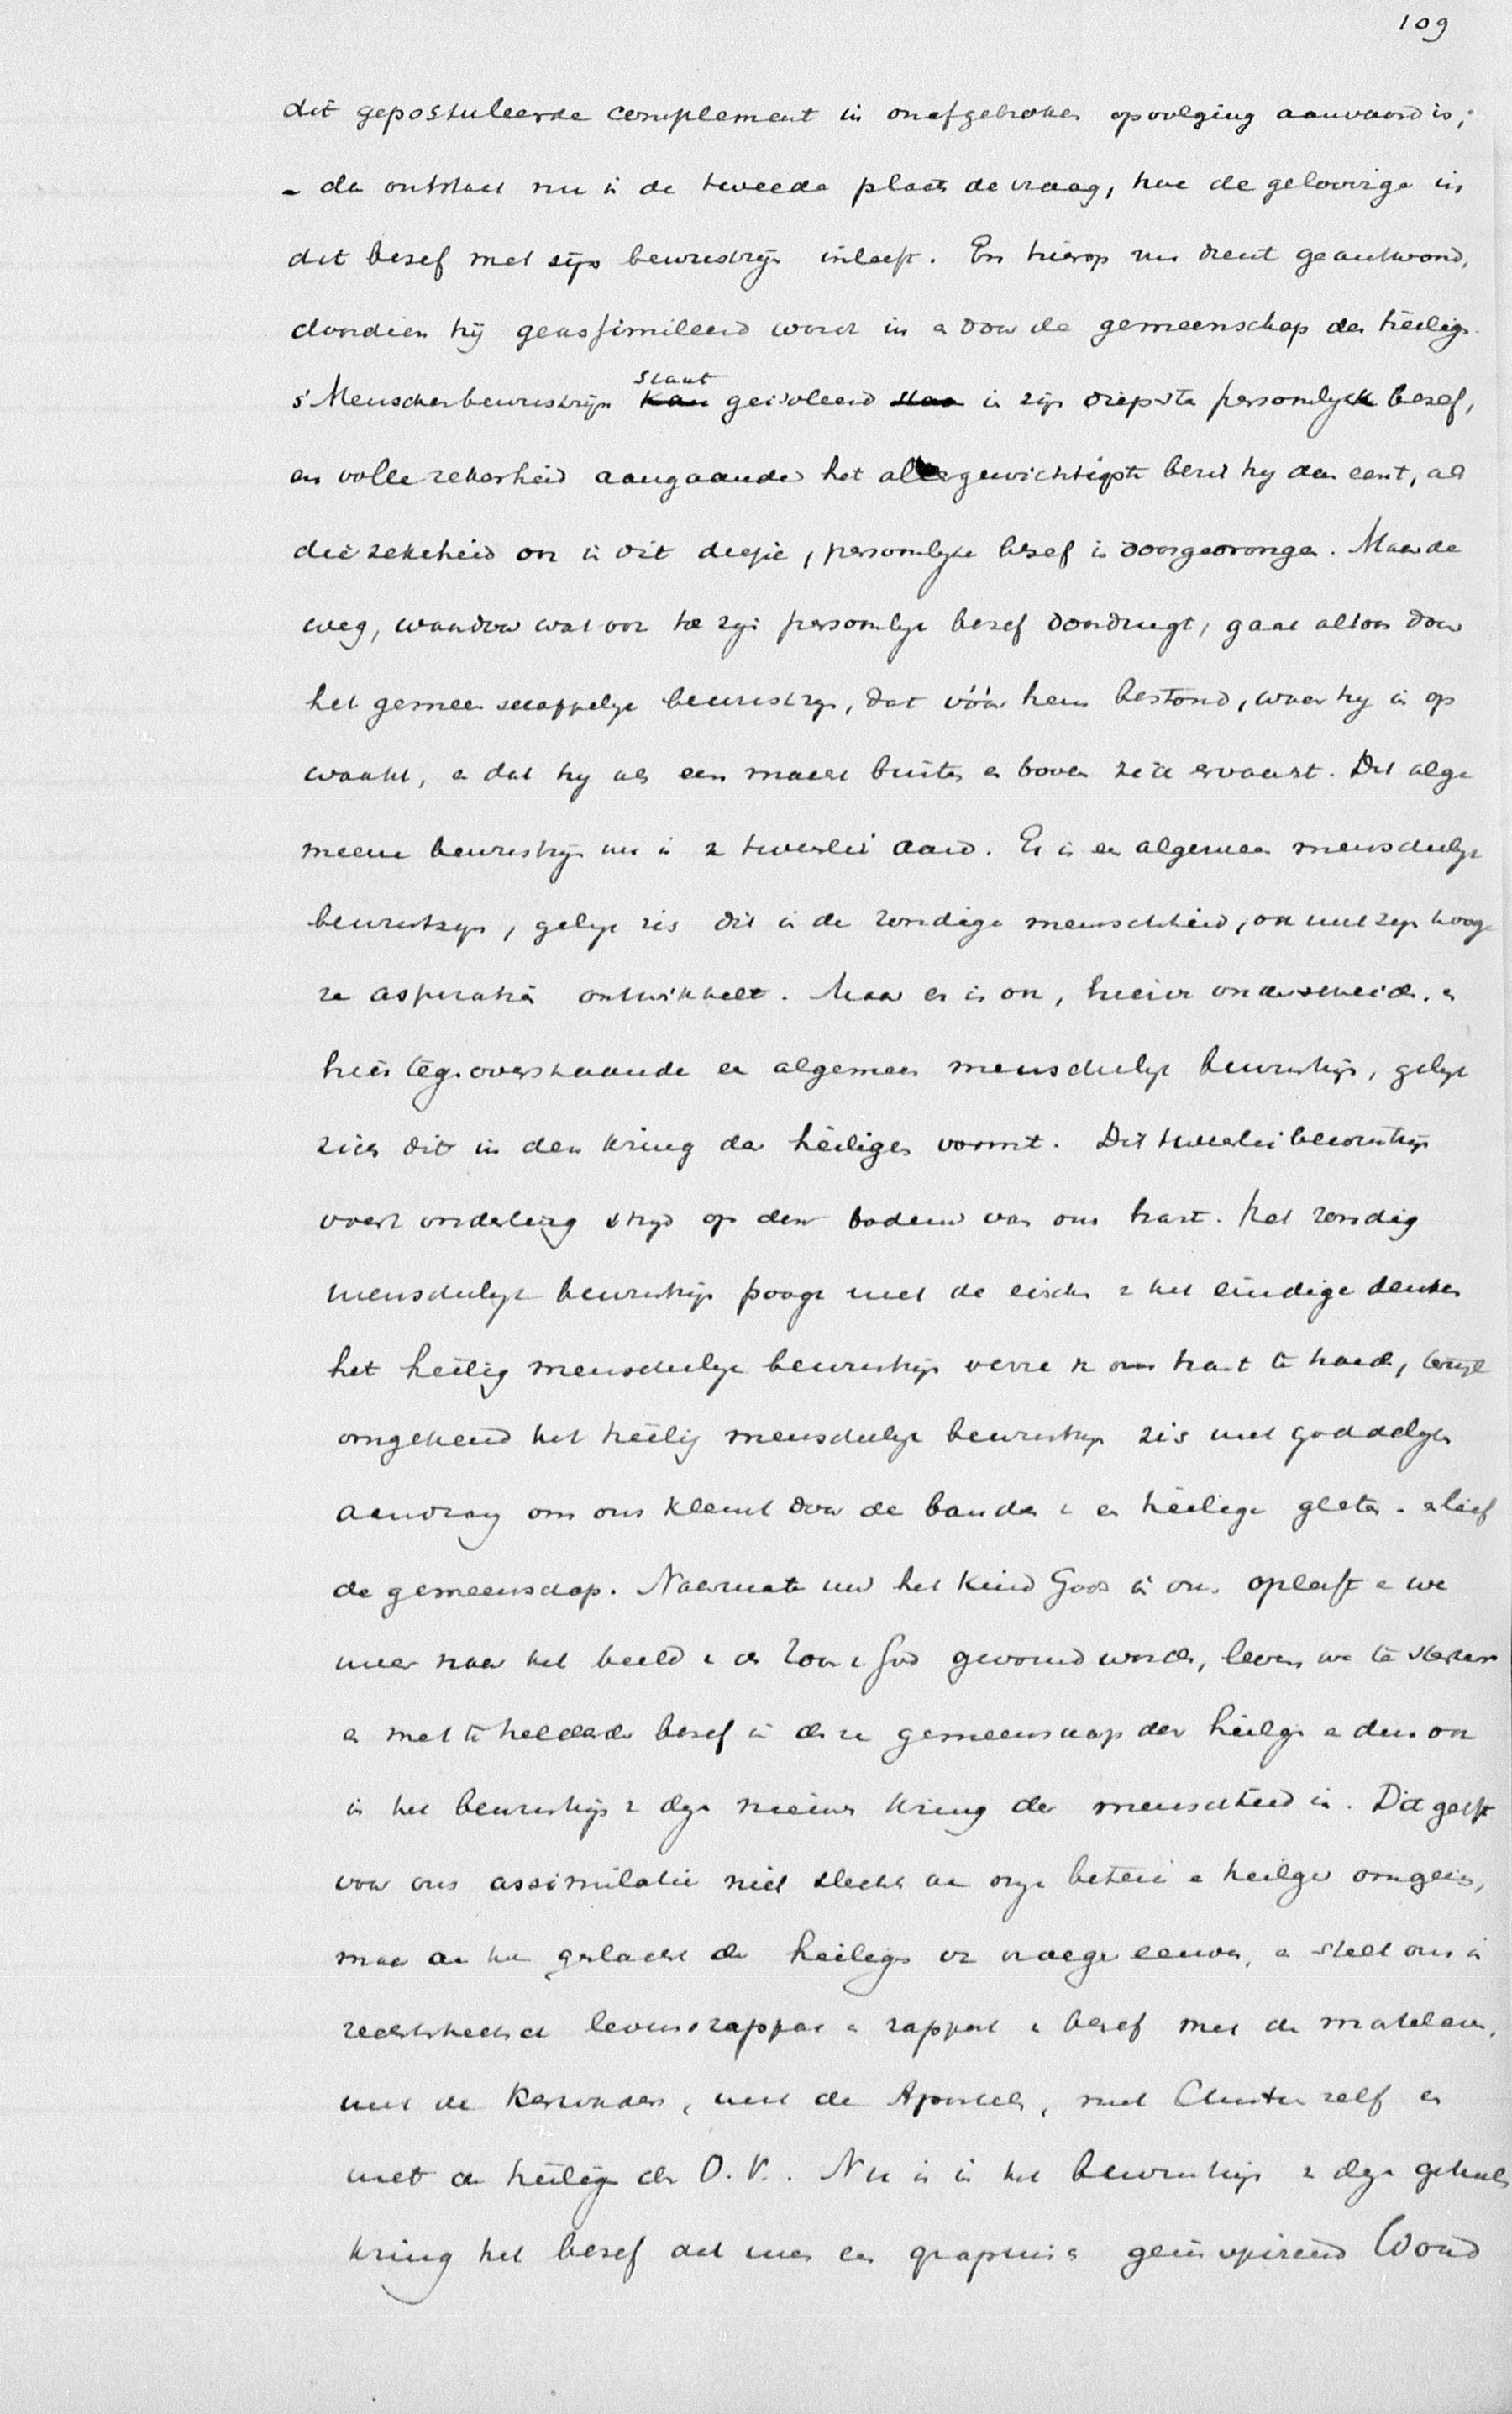 109
dit gepostuleerde complement in onafgebroken opvolging aanvaard is;
- da ontstaat nu in de tweede plaats de vraag, hoe de geloovige in
dit besef met zijn bewustzijn inleeft. En hierop nu dient geantwoord,
doordien hij geassimileerd wordt in en door de gemeenschap der heilige.
s' Menschenbewustzijn staat geisoleerd in zijn diepste persoonlijk besef,
en volle zekerheid aangaande het allergewichtigste bezit hij dan eerst, als
die zekerheid ook in dit diepe, persoonlijke besef is doorgedrongen. Maar de
weg, waardoor wat ook tot zijn persoonlijk besef doordringt, gaat altoos door
het gemeenschappelijk bewustzijn, dat vóór hem bestond, waar hij in op
waakt, en dat hij als een macht buiten en boven zich ervaart. Dit alge
meene bewustzijn nu is v tweeërlei aard. Er is een algemeen menschelijk
bewustzijn, gelijk zich dit in de zondige menschheid, ook met zijn hooge
re aspiratiën ontwikkelt. Maar er is ook, hiervan onderscheiden en
hier tegenoverstaande een algemeen menschelijk bewustzijn, gelijk
zich dit in den kring der heiligen vormt. Dit tweeërlei bewustzijn
voert onderling strijd op den bodem van ons hart. Het zondig
menschelijk bewustzijn poogt met de eischen v het eindige denken
het heilig menschelijk bewustzijn verre v ons hart te houden, terwijl
omgekeerd het heilig menschelijk bewustzijn zich met goddelijken
aandrang om ons klemt door de banden v en heilige gloten - alief
de gemeenschap. Naarmate nu het kind Gods in ons opleeft en we
meer naar het beeld v den Zoon v God gevormd worden, leven we te sterker
en met te helderder besef in deze gemeenschap der heilige en dus ook
in het bewustzijn v deze nieuwe kring der menschheid in. Dit geeft
voor ons assimilatie niet slechts aan onze betere en heilige omgeving,
maar aan het geslacht der heiligen v vroege eeuwen, en stelt ons in
rechtstreeksch levensrapport en rapport v besef met de martelaren,
met de kerkvaders, met de Apostelen, met Christus zelf en
met de heiligen des O.V.. Nu is in het bewustzijn v deze geheele
kring het besef dat men een graphisch geïnspireerd Woord